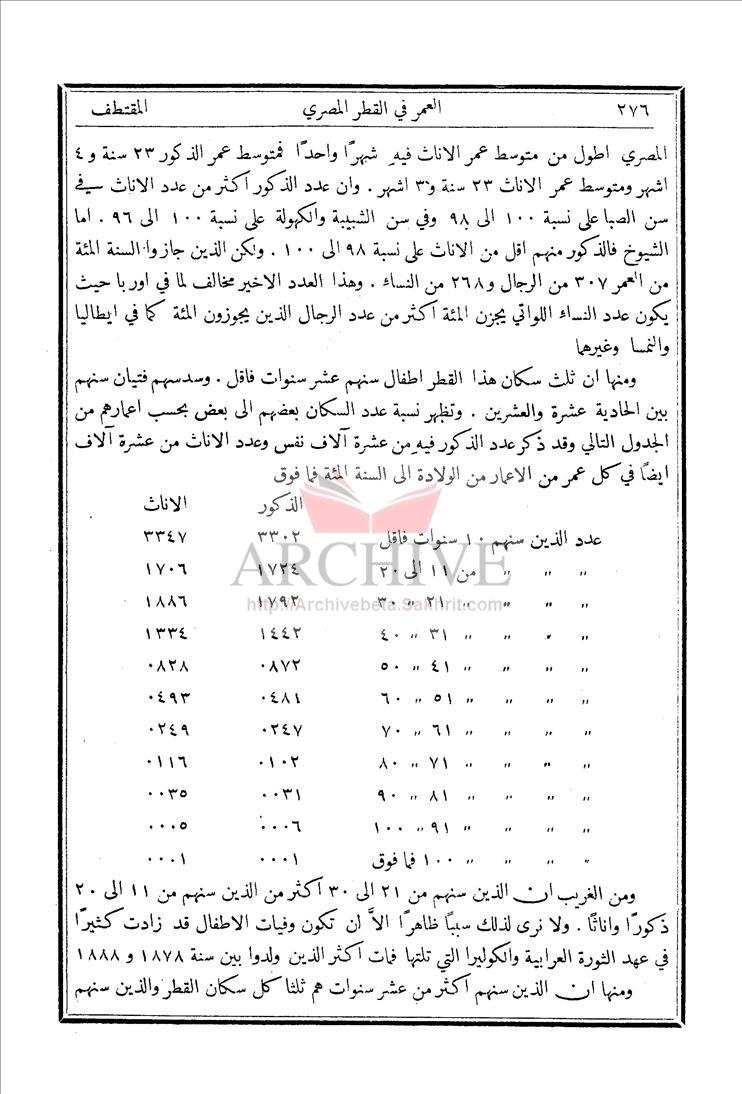 ٢٧٦ العمر في القطر المصري المقتطف
المصري اطول من متوسط عمر الاناث فيه شهرًا واحدًا فمتوسط عمر الذكور ٢٣ سنة و ٤
اشهر ومتوسط عمر الاناث ٢٣ سنة و٣ اشهر . وان عدد الذكور اكثر من عدد الاناث في
سن الصبا على نسبة ١٠٠ الى ٩٨ وفي سن الشبيبة والكهولة على نسبة ١٠٠ الى ٩٦ . اما
الشيوخ فالذكور منهم اقل من الاناث على نسبة ٩٨ الى ١٠٠ . ولكن الذين جازوا السنة المئة
من العمر ٣٠٧ من الرجال و٢٦٨ من النساء . وهذا العدد الاخير مخالف لما في اوربا حيث
يكون عدد النساء اللواتي يجزن المئة اكثر من عدد الرجال الذين يجوزون المئة كما في ايطاليا
والنمسا وغيرهما
ومنها ان ثلث سكان هذا القطر اطفال سنهم عشر سنوات فاقل . وسدسهم فتيان سنهم
بين الحادية عشرة والعشرين . وتظهر نسبة عدد السكان بعضهم الى بعض بحسب اعمارهم من
الجدول التالي وقد ذكر عدد الذكور فيه من عشرة آلاف نفس وعدد الاناث من عشرة آلاف
ايضًا في كل عمر من الاعمار من الولادة الى السنة المئة فما فوق
الذكور الاناث
عدد الذين سنهم ١٠ سنوات فاقل ٣٣٠٢ ٣٣٤٧
" " " من ١١ الى ٢٠ ١٧٢٤ ١٧٠٦
" " " " ٢١ " ٣٠ ١٧٩٢ ١٨٨٦
" " " " ٣١ " ٤٠ ١٤٤٢ ١٣٣٤
" " " " ٤١ " ٥٠ ٠٨٧٢ ٠٨٢٨
" " " " ٥١ " ٦٠ ٠٤٨١ ٠٤٩٣
" " " " ٦١ " ٧٠ ٠٢٤٧ ٠٢٤٩
" " " " ٧١ " ٨٠ ٠١٠٢ ٠١١٦
" " " " ٨١ " ٩٠ ٠٠٣١ ٠٠٣٥
" " " " ٩١ " ١٠٠ ٠٠٠٦ ٠٠٠٥
" " " " ١٠٠ فما فوق ٠٠٠١ ٠٠٠١
ARCHIVE
http://Archivebeta.Sakhrit.com
ومن الغريب ان الذين سنهم من ٢١ الى ٣٠ اكثر من الذين سنهم من ١١ الى ٢٠
ذكورًا واناثًا . ولا نرى لذلك سببًا ظاهرًا الاَّ ان تكون وفيات الاطفال قد زادت كثيرًا
في عهد الثورة العرابية والكوليرا التي تلتها فمات اكثر الذين ولدوا بين سنة ١٨٧٨ و ١٨٨٨
ومنها ان الذين سنهم اكثر من عشر سنوات هم ثلثا كل سكان القطر والذين سنهم